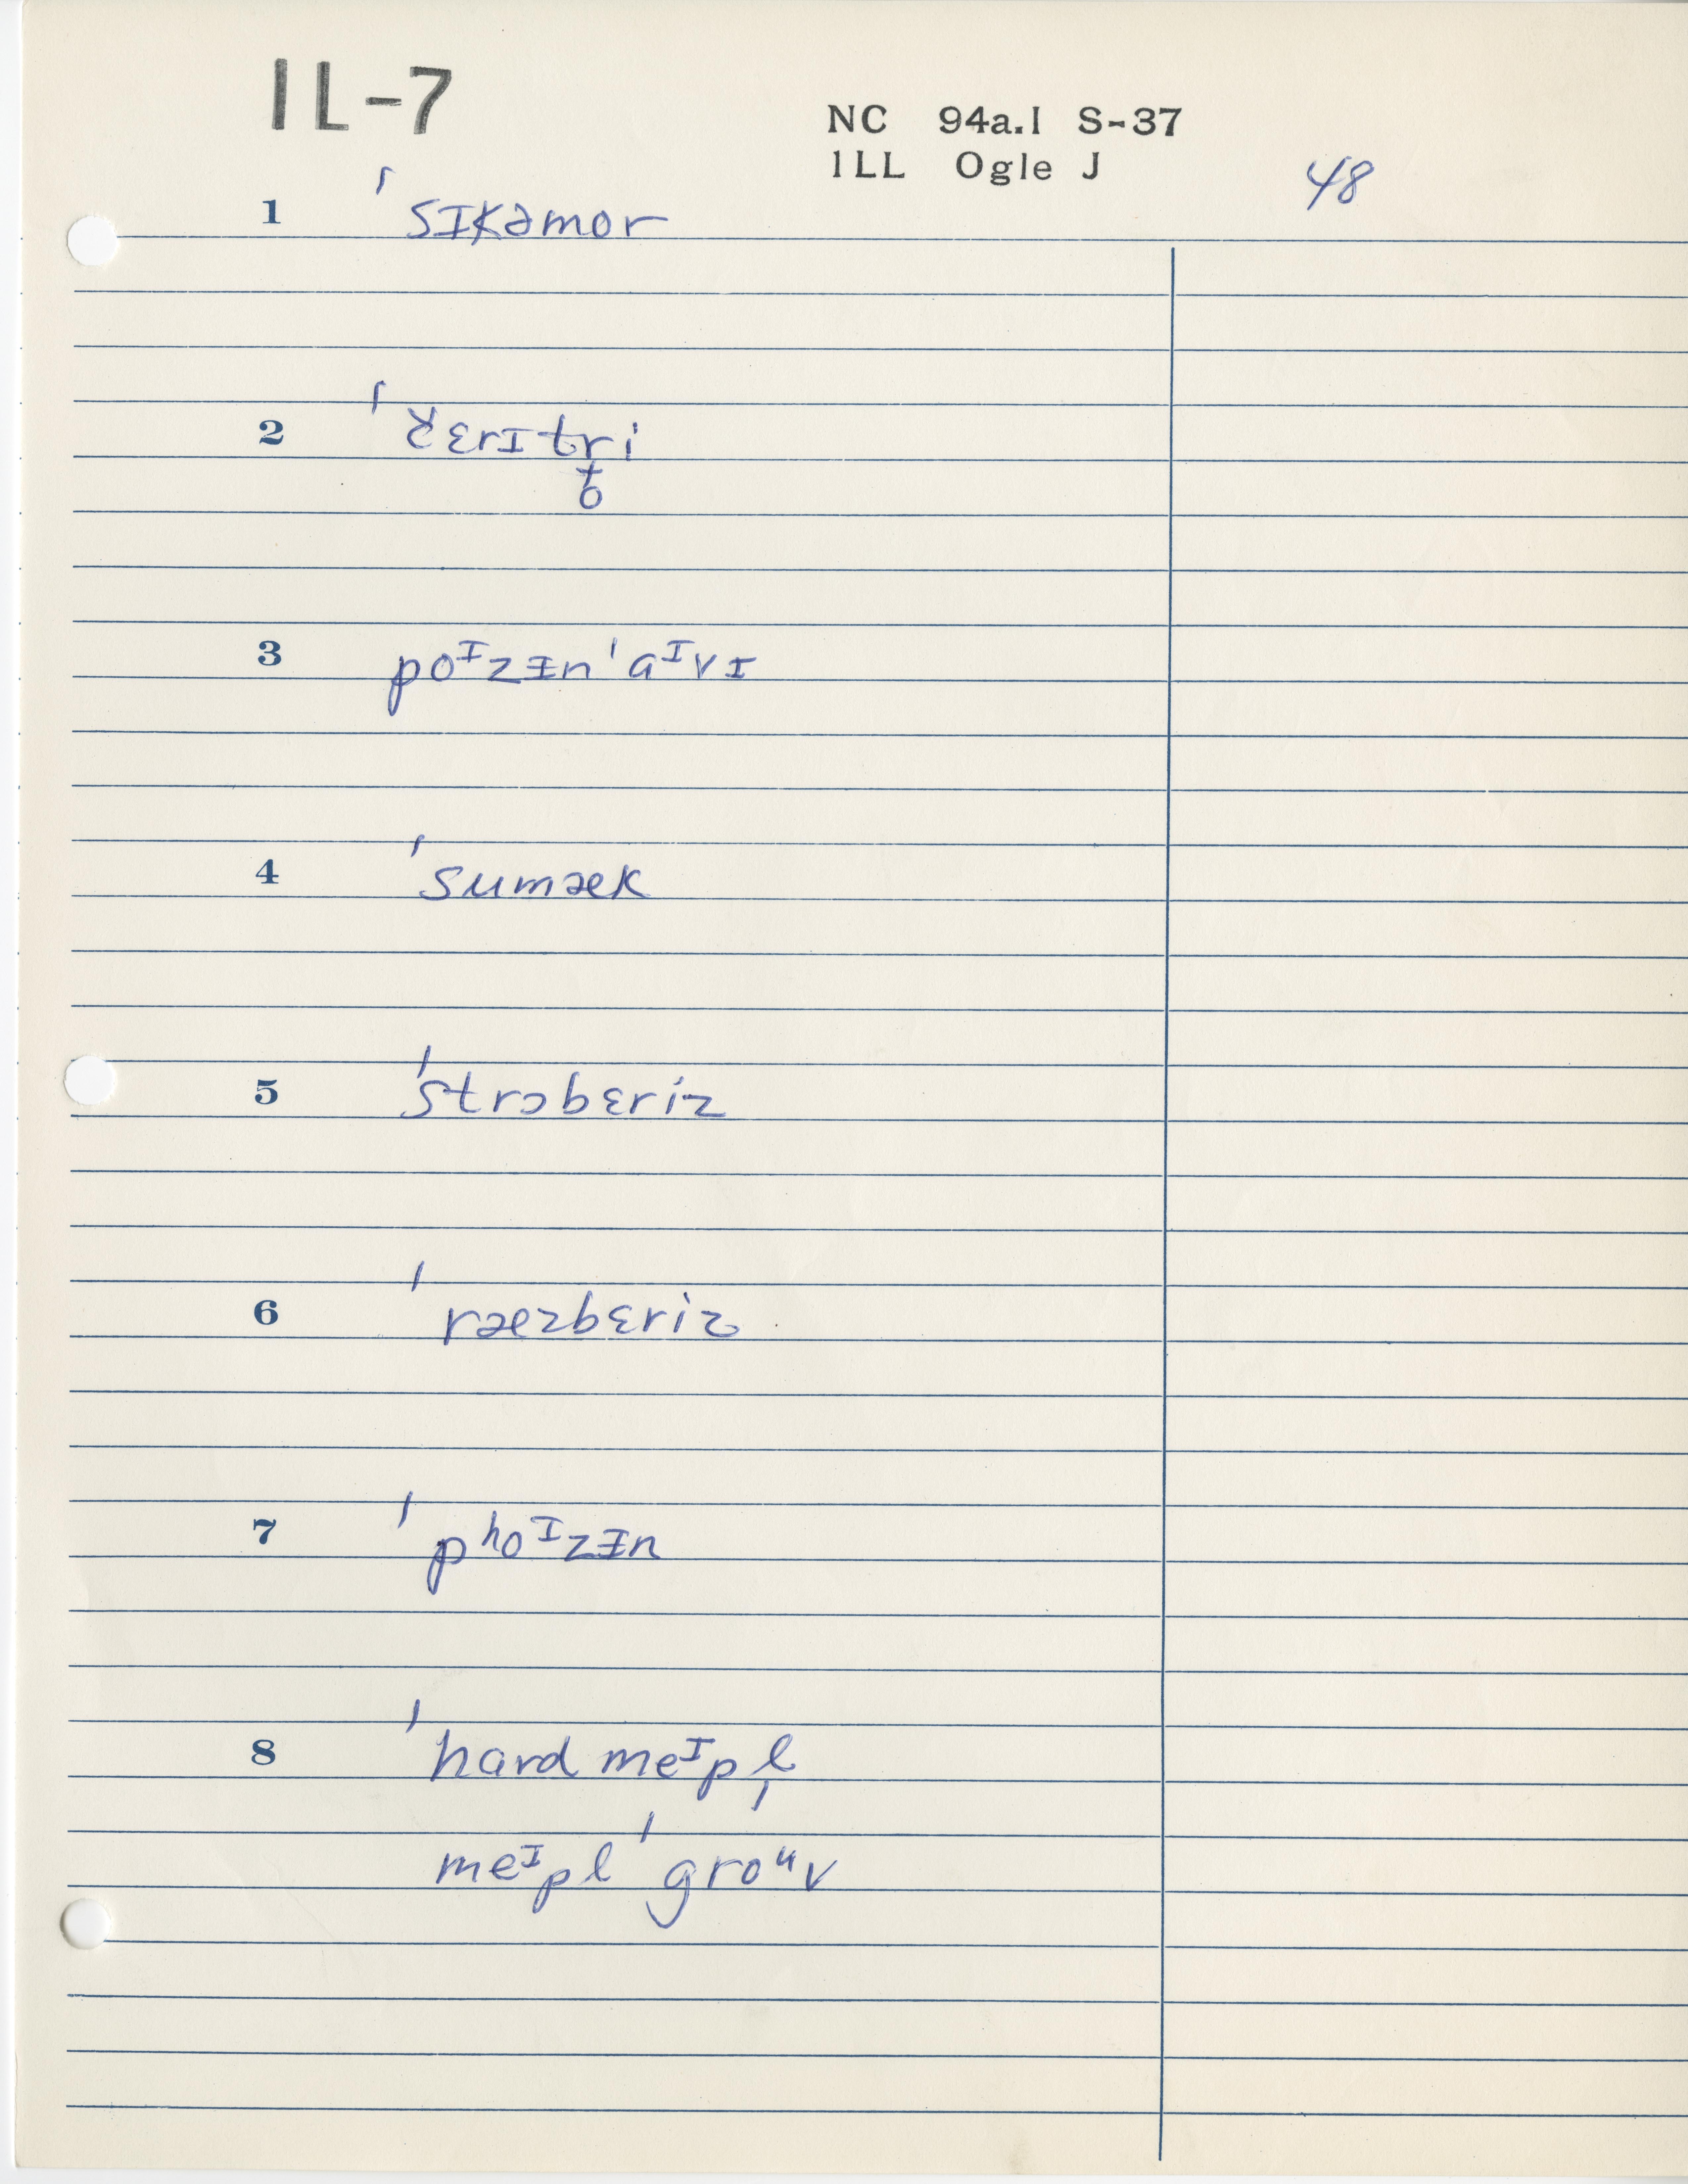 IL-7
NC 94a.1 S-37
ILL Ogle J
48
1 ˈsɪkəmor
3 poᴵzɪ̵nˈaᴵvɪ
4 ˈsumæk
5 ˈstrɔbɛriz
6 ˈræzbɛriz
7 ˈpʰoᴵzɪ̵n
8 ˈhard meᴵpl̩
meᴵplˈgroᵘv